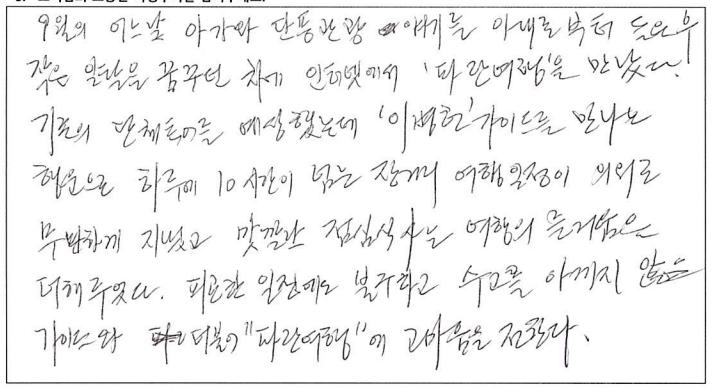 9월의 어느날 아가와 단풍관광 얘기를 아내로부터 들은후
작은 일탈을 꿈꾸던 차에 인터넷에서 '파란여행'을 만났다.
기존의 단체투어를 예상했는데 '이병헌'가이드를 만나는
행운으로 하루에 10시간이 넘는 장거리 여행일정이 의외로
무난하게 지났고 맛깔난 점심식사는 여행의 즐거움을
더해주었다. 피곤한 일정에도 불구하고 수고를 아끼지 않은
가이드와 더불어 "파란여행"에 고마움을 전한다.